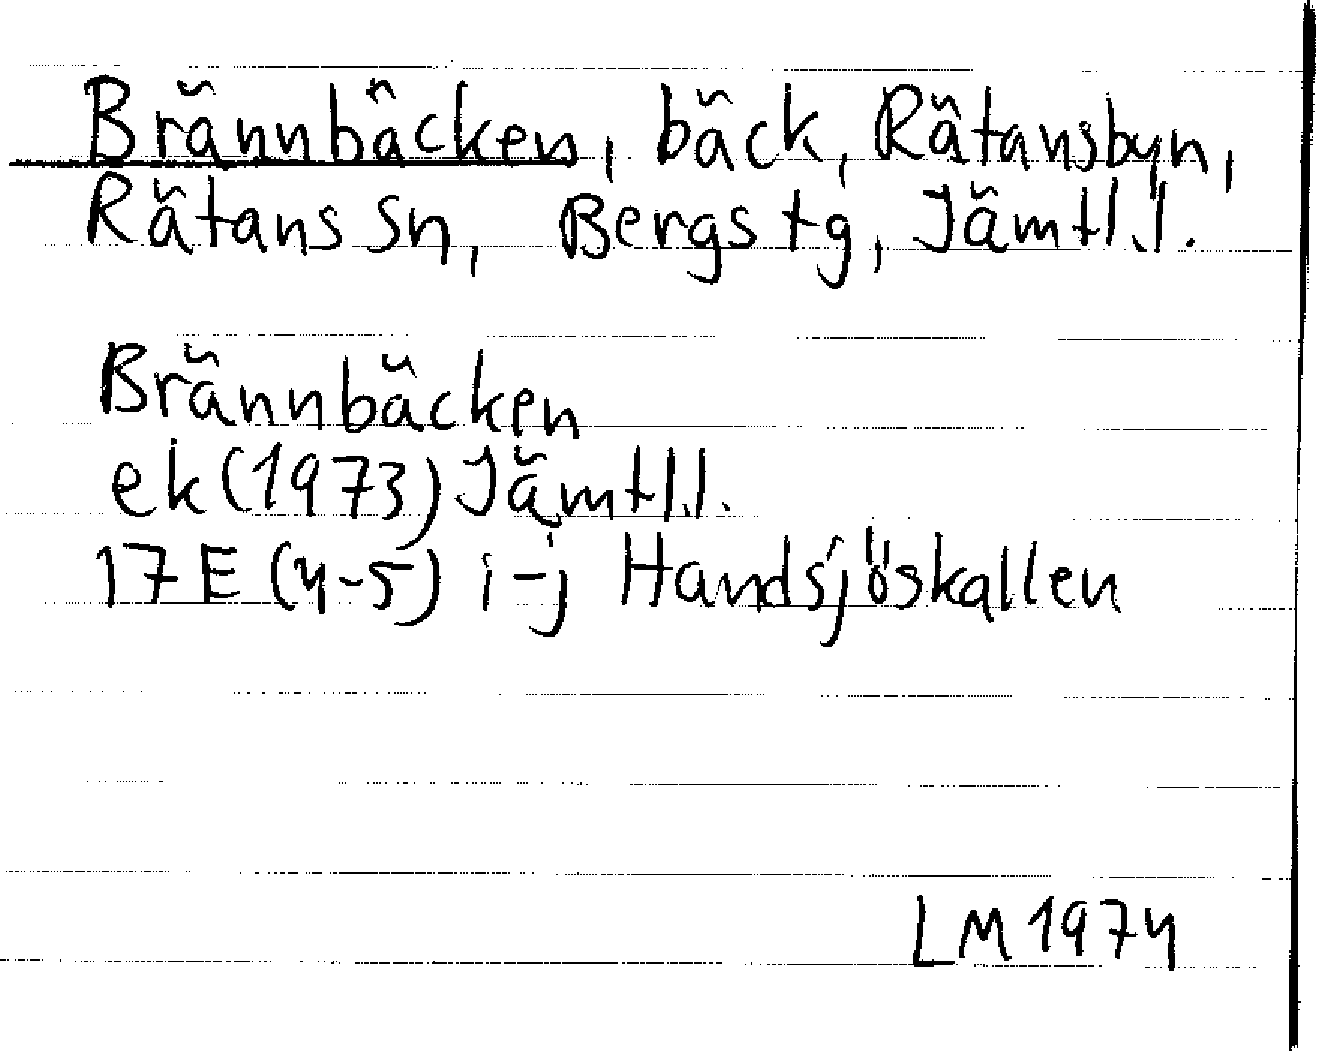 Brännbäcken, bäck, Rätansbyn,
Rätans sn, Bergs tg, Jämtl.l.
Brännbäcken
ek (1973) Jämtl.l.
17E (4-5) i-j Handsjöskallen
LM 1974